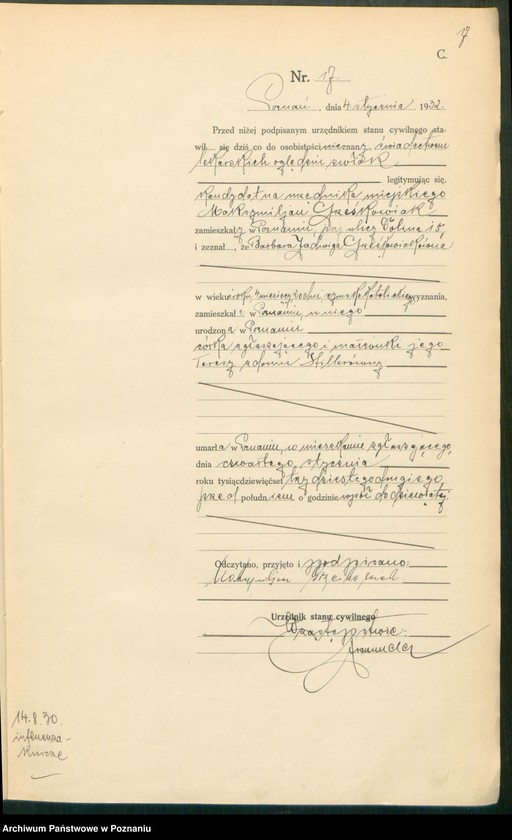 17
C.
Nr. 17
Poznań, dnia 4 stycznia 1932.
Przed niżej podpisanym urzędnikiem stanu cywilnego sta-
wił się dziś co do osobistości nieznany, świadectwem
lekarskich oględzin zwłok
legitymując się,
kandydat na urzędnika miejskiego
Maksymiljan Grześkowiak
zamieszkały w Poznaniu, przy ulicy Dolina
i zeznał, że Barbara Jadwiga Grześkowiakówna
w wieku roku miesięcy rzymsko katolickiego wyznania,
zamieszkała w Poznaniu, u niego
urodzona w Poznaniu
córka zgłaszającego i małżonki jego
Teresy z domu
umarła w Poznaniu, w mieszkaniu zgłaszającego,
dnia czwartego stycznia
roku tysiącdziewięćset trzydziestego drugiego
przed południem o godzinie wpół do dziewiątej.
Odczytano, przyjęto i podpisano:
Urzędnik stanu cywilnego
W zastępstwie:
14.8.30.
influenza-
Archiwum Państwowe w Poznaniu